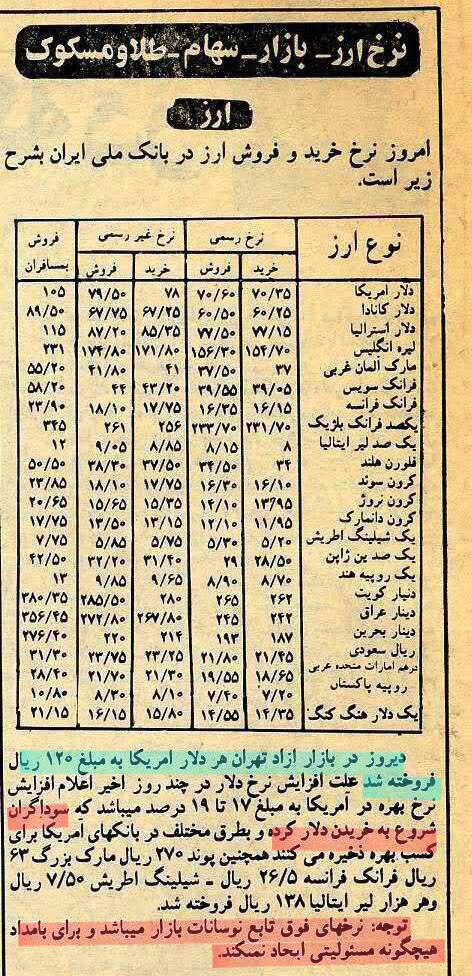 نرخ ارز_ بازار_ سهام_ طلا و مسکوک
ارز
امروز نرخ خرید و فروش ارز در بانک ملی ایران بشرح
زیر است.
نوع ارز | نرخ رسمی | نرخ غیر رسمی | فروش بمسافران
خرید | فروش | خرید | فروش
دلار امریکا ۷۰/۳۵ ۷۰/۶۰ ۷۸ ۷۹/۵۰ ۱۰۵
دلار کانادا ۶۰/۲۵ ۶۰/۵۰ ۶۷/۲۵ ۶۷/۷۵ ۸۹/۵۰
دلار استرالیا ۷۷/۱۵ ۷۷/۵۰ ۸۵/۳۵ ۸۷/۲۰ ۱۱۵
لیره انگلیس ۱۵۴/۷۰ ۱۵۶/۳۰ ۱۷۱/۸۰ ۱۷۴/۸۰ ۲۳۱
مارک آلمان غربی ۳۷ ۳۷/۵۰ ۴۱ ۴۱/۸۰ ۵۵/۲۰
فرانک سویس ۳۹/۰۵ ۳۹/۵۵ ۴۳/۲۰ ۴۴ ۵۸/۲۰
فرانک فرانسه ۱۶/۱۵ ۱۶/۳۵ ۱۷/۷۵ ۱۸/۱۰ ۲۳/۹۰
یکصد فرانک بلژیک ۲۳۱/۷۰ ۲۳۳/۷۰ ۲۵۶ ۲۶۱ ۳۴۵
یک صد لیر ایتالیا ۸ ۸/۱۵ ۸/۸۵ ۹/۰۵ ۱۲
فلورن هلند ۳۴ ۳۴/۵۰ ۳۷/۵۰ ۳۸/۳۰ ۵۰/۵۰
کرون سوئد ۱۶/۱۰ ۱۶/۳۰ ۱۷/۷۵ ۱۸/۱۰ ۲۳/۸۵
کرون نروژ ۱۳/۹۵ ۱۴/۱۰ ۱۵/۳۵ ۱۵/۶۵ ۲۰/۶۵
کرون دانمارک ۱۱/۹۵ ۱۲/۱۰ ۱۳/۱۵ ۱۳/۵۰ ۱۷/۷۵
یک شیلینگ اطریش ۵/۲۰ ۵/۳۰ ۵/۷۵ ۵/۸۵ ۷/۷۵
یک صد ین ژاپن ۲۸/۵۰ ۲۹ ۳۱/۴۰ ۳۲/۲۰ ۴۲/۵۰
یک روپیه هند ۸/۷۰ ۸/۹۰ ۹/۶۵ ۹/۸۵ ۱۳
دنیار کویت ۲۶۲ ۲۶۵ ۲۸۰ ۲۸۵/۵۰ ۳۸۰/۳۵
دینار عراق ۲۴۲ ۲۴۵ ۲۶۷/۸۰ ۲۷۲/۸۰ ۳۵۶/۴۵
دینار بحرین ۱۸۷ ۱۹۳ ۲۱۴ ۲۲۰ ۲۷۶/۴۰
ریال سعودی ۲۱/۴۵ ۲۱/۸۰ ۲۳/۲۵ ۲۳/۷۵ ۳۱/۳۰
درهم امارات متحده عربی ۱۸/۶۵ ۱۹/۵۵ ۲۱/۳۰ ۲۱/۷۰ ۲۸/۴۰
روپیه پاکستان ۷/۲۰ ۷/۴۰ ۸/۱۰ ۸/۳۰ ۱۰/۸۰
یک دلار هنگ کنگ ۱۴/۳۵ ۱۴/۵۵ ۱۵/۸۰ ۱۶/۱۵ ۲۱/۱۵
دیروز در بازار ازاد تهران هر دلار امریکا به مبلغ ۱۲۰ ریال
فروخته شد علت افزایش نرخ دلار در چند روز اخیر اعلام افزایش
نرخ بهره در آمریکا به مبلغ ۱۷ تا ۱۹ درصد میباشد که سوداگران
شروع به خریدن دلار کرده و بطرق مختلف در بانکهای آمریکا برای
کسب بهره ذخیره می کنند همچنین پوند ۲۷۰ ریال مارک بزرگ ۶۳
ریال فرانک فرانسه ۲۶/۵ ریال _ شیلینگ اطریش ۷/۵۰ ریال
وهر هزار لیر ایتالیا ۱۳۸ ریال فروخته شد.
توجه: نرخهای فوق تابع نوسانات بازار میباشد و برای بامداد
هیچگونه مسئولیتی ایجاد نمیکند.